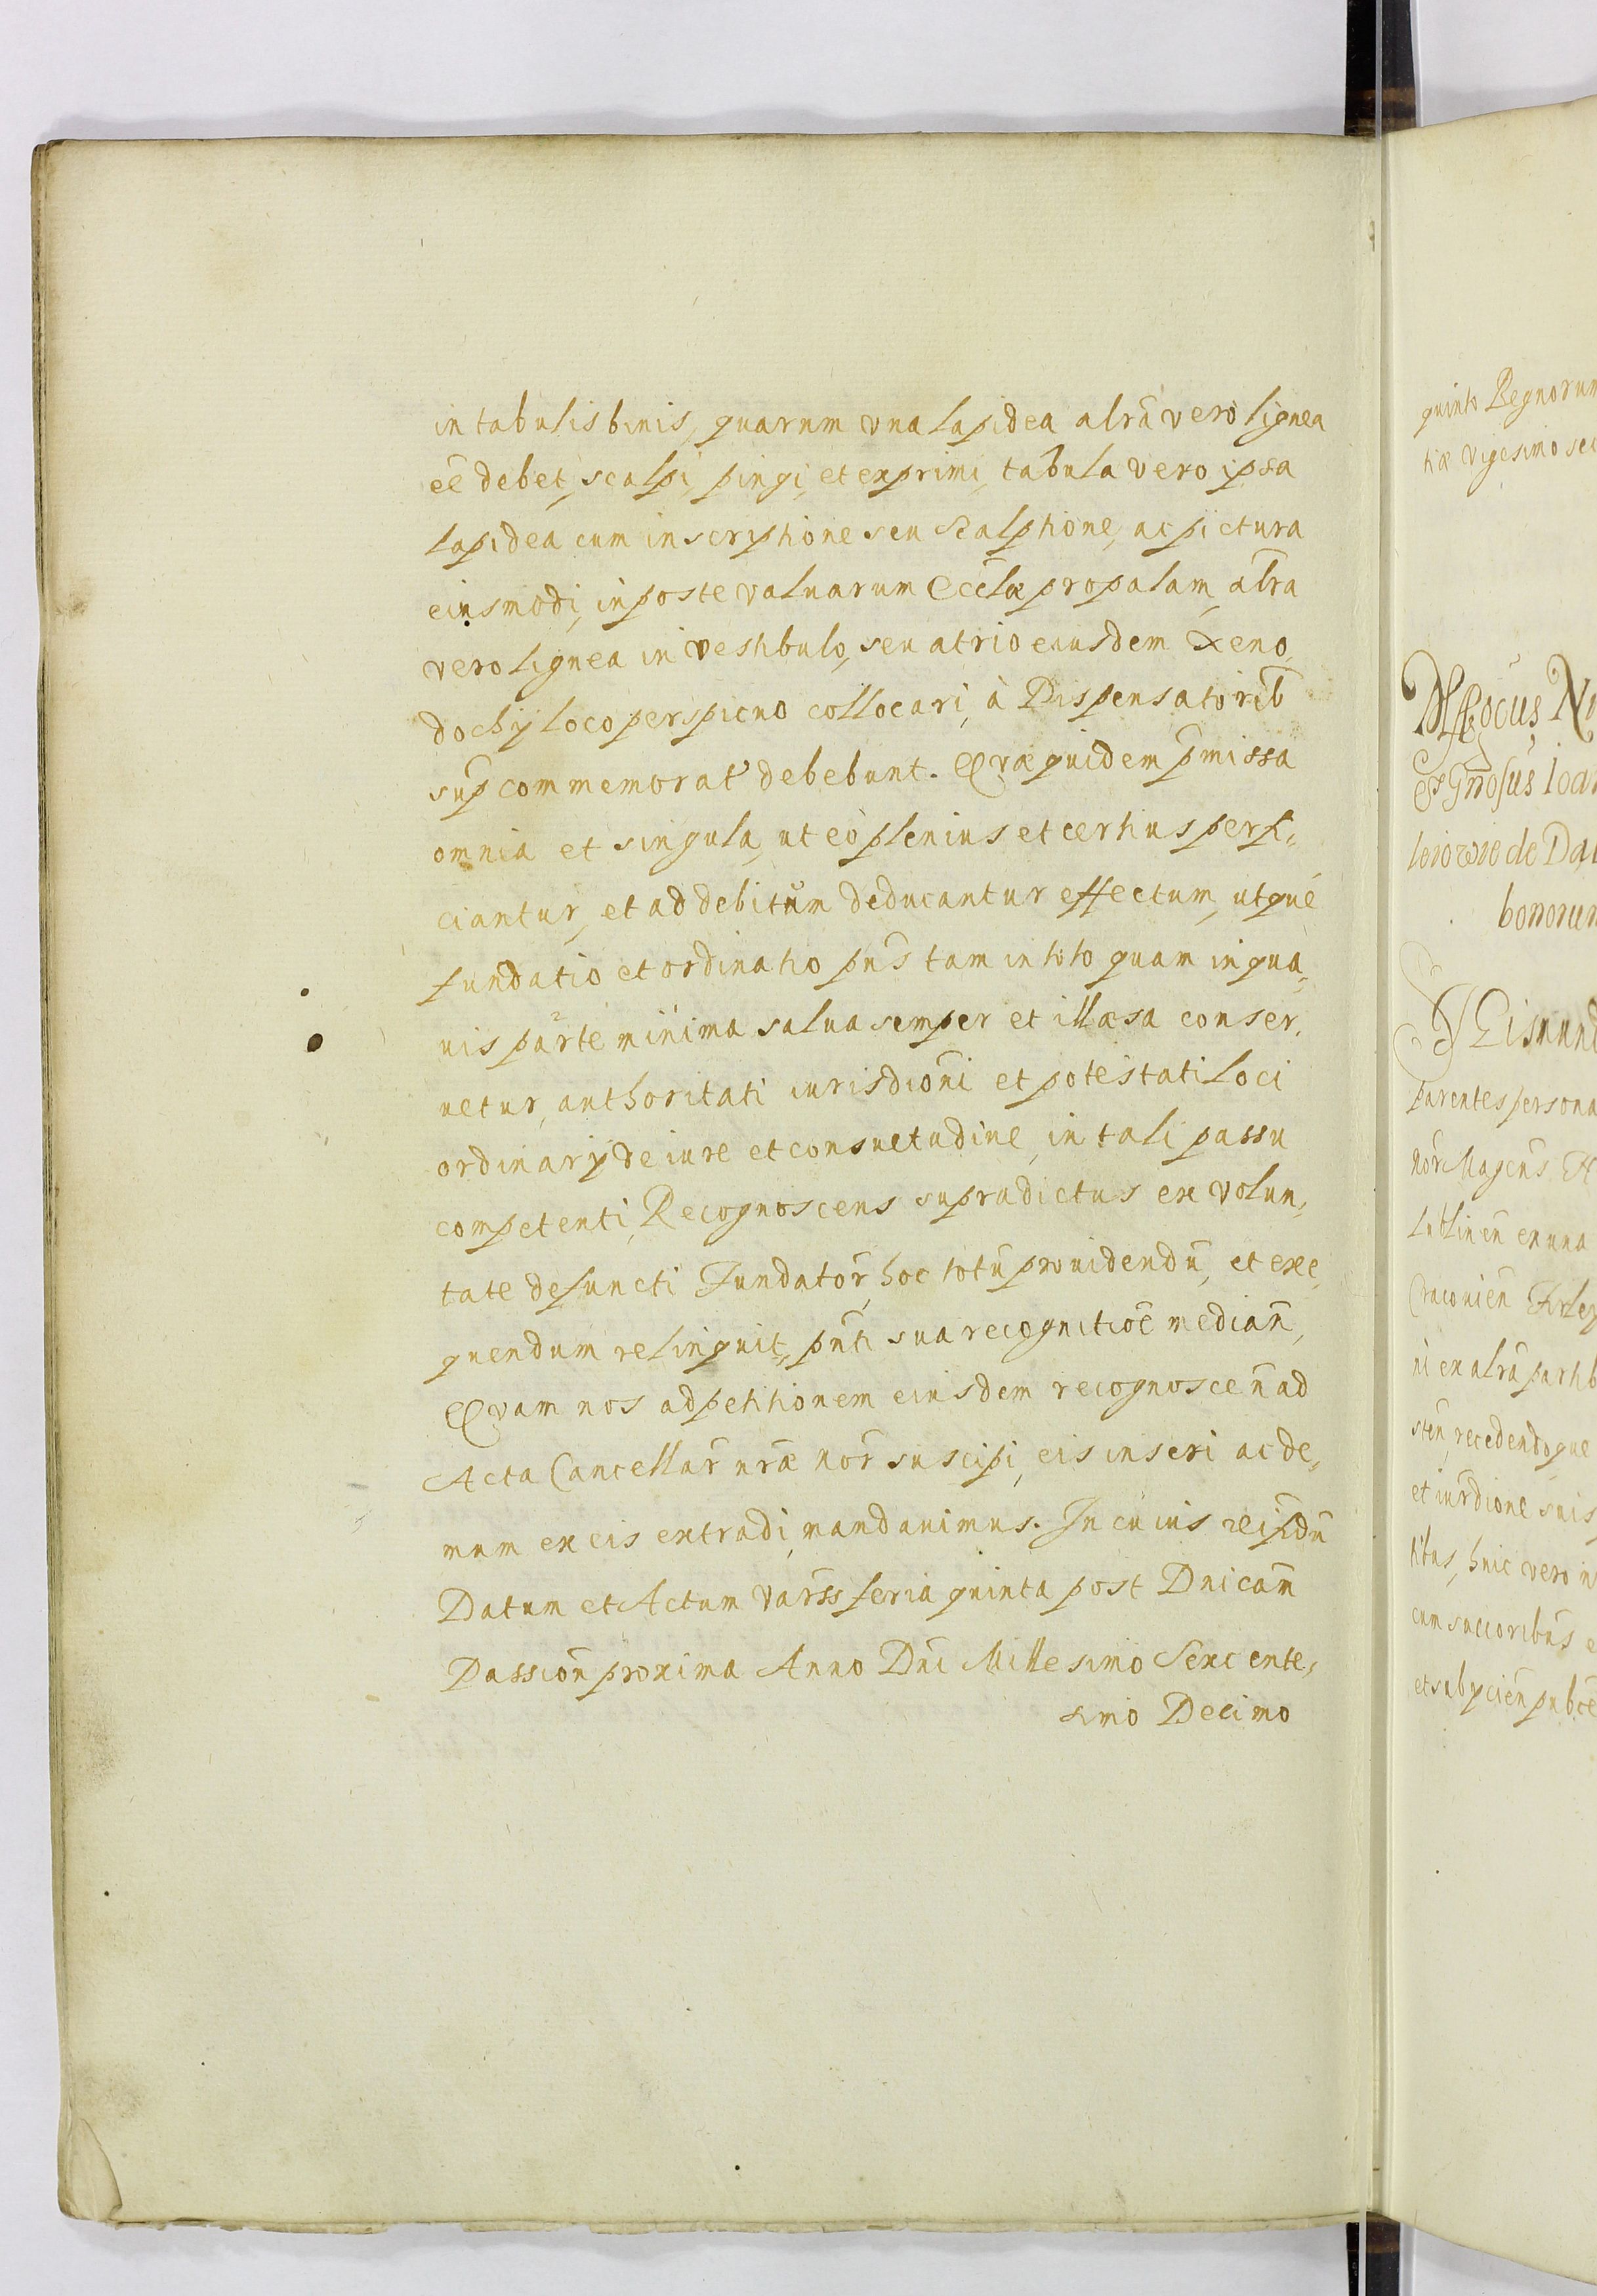 in tabulis binis, quarum vna lapidea alrã vero lignea
eẽ debet, scalpi, pingi, et exprimi, tabula vero ipsa
lapidea cum inscriptione seu scalptione, ac pictura
eiusmodi, in poste valuarum Eccĩæ propalam, alrã
vero lignea in Vestibulo, seu atrio eiusdem Xeno,
dochÿ loco perspicuo collocari, à Dispensatorib̃
sup̃ commemorat̃ debebunt. Quæ quidem p̃missa
omnia et singula, ut eò plenius et certius perfi,,
ciantur, et ad debitũm deducantur effectum, utque
fundatio et ordinatio pñs tam in toto quam in qua,
uis parte minima salua semper et illæsa conser,
uetur, authoritati iurisdioñi et potestati Loci
ordinarÿ de iure et consuetudine, in tali passu
competenti, Recognoscens supradictus ex volun,
tate defuncti Fundator̃, hoc totũ prouidendũ, et exe,
quendum relinquit, pñti sua recognitioẽ median̄,
Quam nos ad petitionem eiusdem recognoscen̄ ad
Acta Cancellar̃ nr̃æ nor̃ suscipi, eis inseri ac de,
mum ex eis extradi, mandauimus. In cuius rei fidũ
Datum et Actum Varss̃ feria quinta post Dnicam̃
Passion̄ proxima Anno Dñi Millesimo Sexcente,
simo Decimo
quinto Regnorum
tiæ Vigesimo sec
et Gnõsus Ioan
bonorum
parentes persona
Lublineñ ex una
Cracouieñ
ni ex alrã partib
steñ, recedendoque
et iurdione suis
titus, huic vero in
cum succoribus e